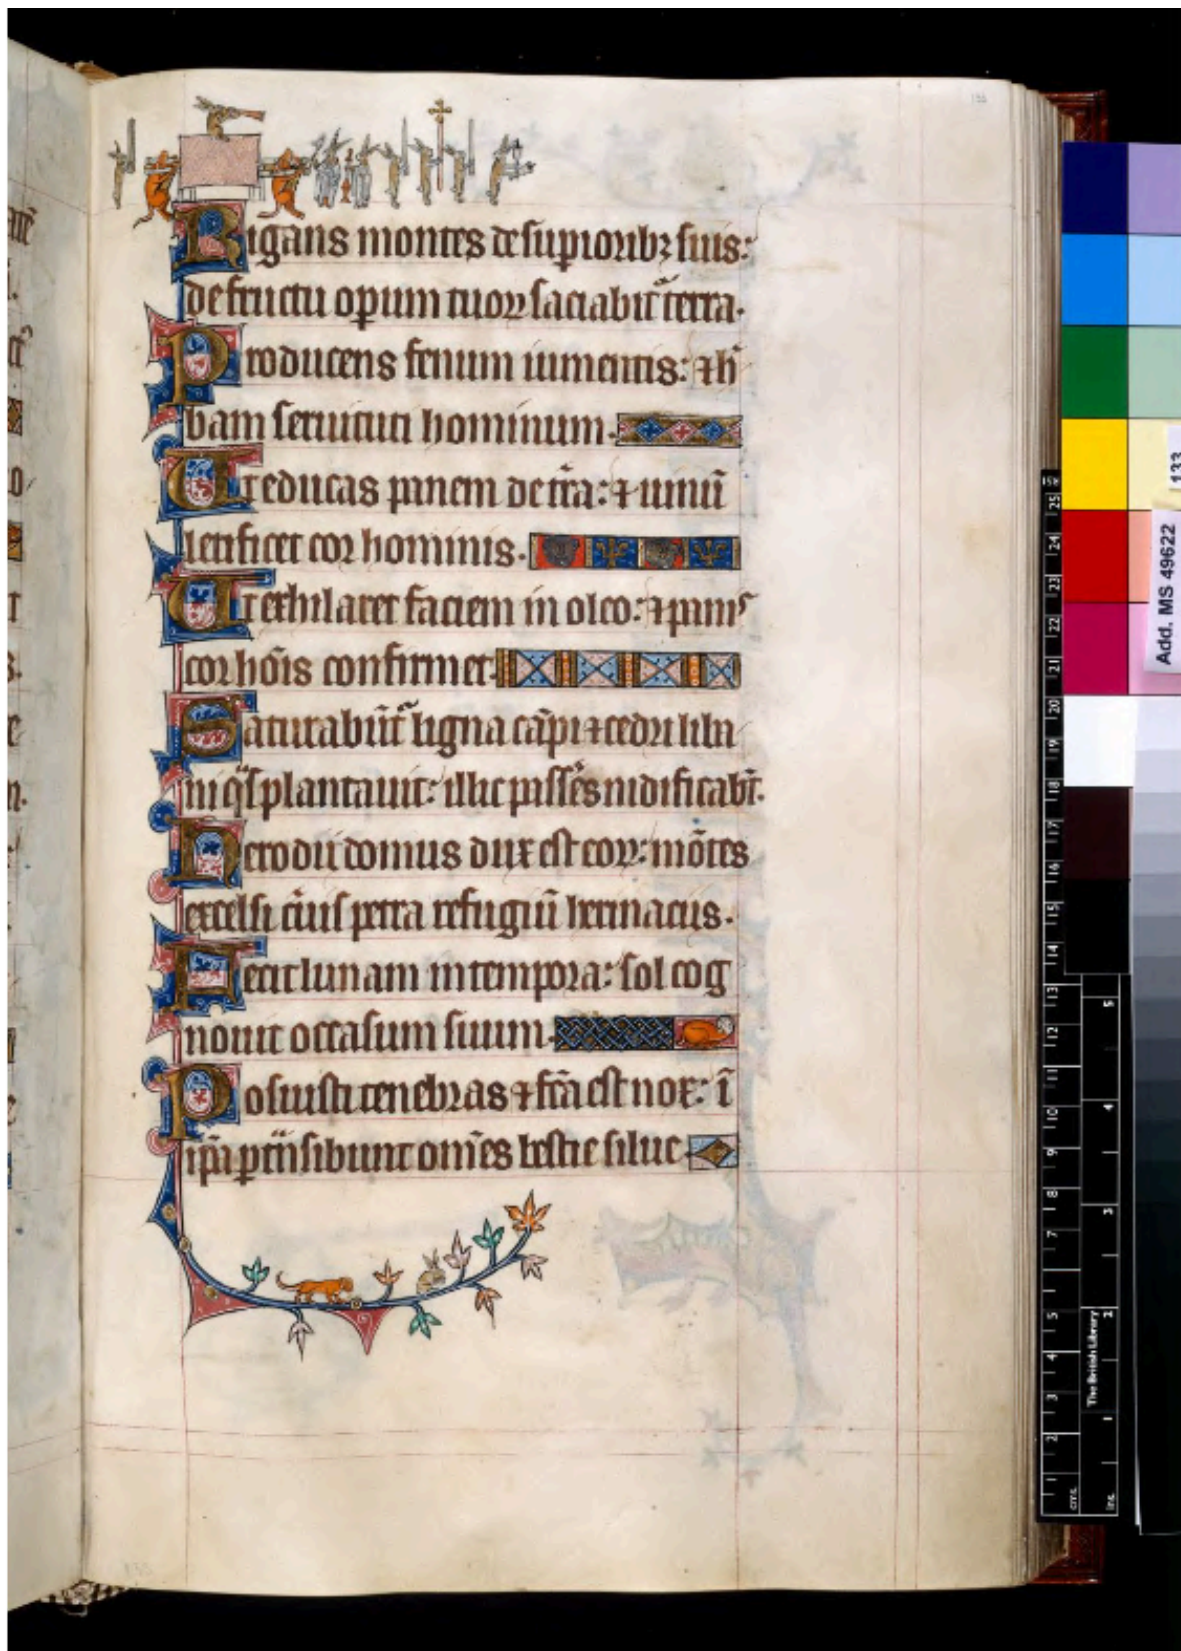 Rigans montes de sup̲ioribꝫ suis:
de fructu op̲um tuoꝝ saciabit᷑ terra.
Producens fenum iumentis: ⁊ h̄
bam seruituti hominum.
Ut educas panem de tr̄a: ⁊ uinū
letificet cor hominis.
Ut exhilaret faciem in oleo: ⁊ panis
cor hōis confirmet.
Saturabūt᷑ ligna cāpi ⁊ cedri liba
ni qͣs plantauit: illic passēs nidificabt̄.
Herodii domus dux est eoꝝ: mōtes
excelsi c̄uis petra refugiū herinaciis.
Fecit lunam in tempora: sol cog
nouit occasum suum.
Posuisti tenebras ⁊ fc̄a est nox: ī
ip̄a ꝑtn̄sibunt om̄es bestie silue
133
Add. MS 49622
The British Library
cms.
1 2 3 4 5 6 7 8 9 10 11 12 13 14 15 16 17 18 19 20 21 22 23 24 25
ins.
1 2 3 4 5